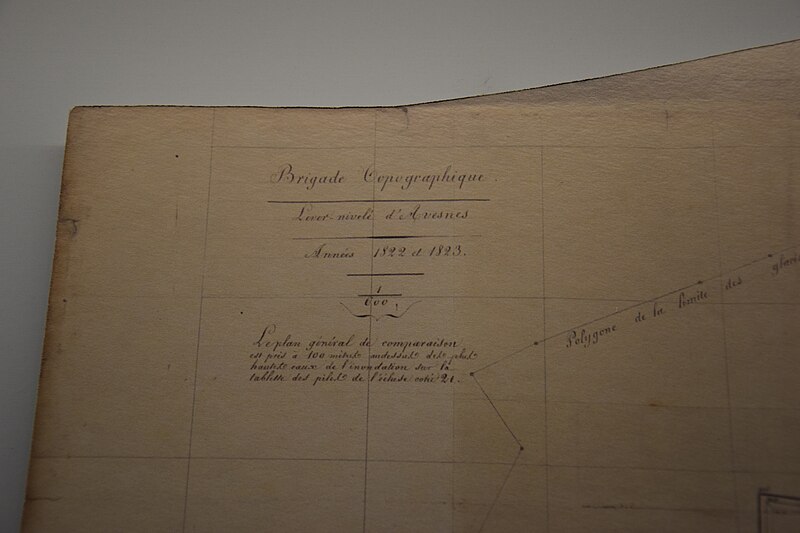 Brigade Topographique.
Lever-nivelé d'Avesnes
Années 1822 et 1823.
1
600,
Le plan général de comparaison
est pris à 100 mètres audessus des plus
hautes eaux de l'inondation sur la
tablette des piles de l'écluse cotée 21.
Polygone de la limite des glacis